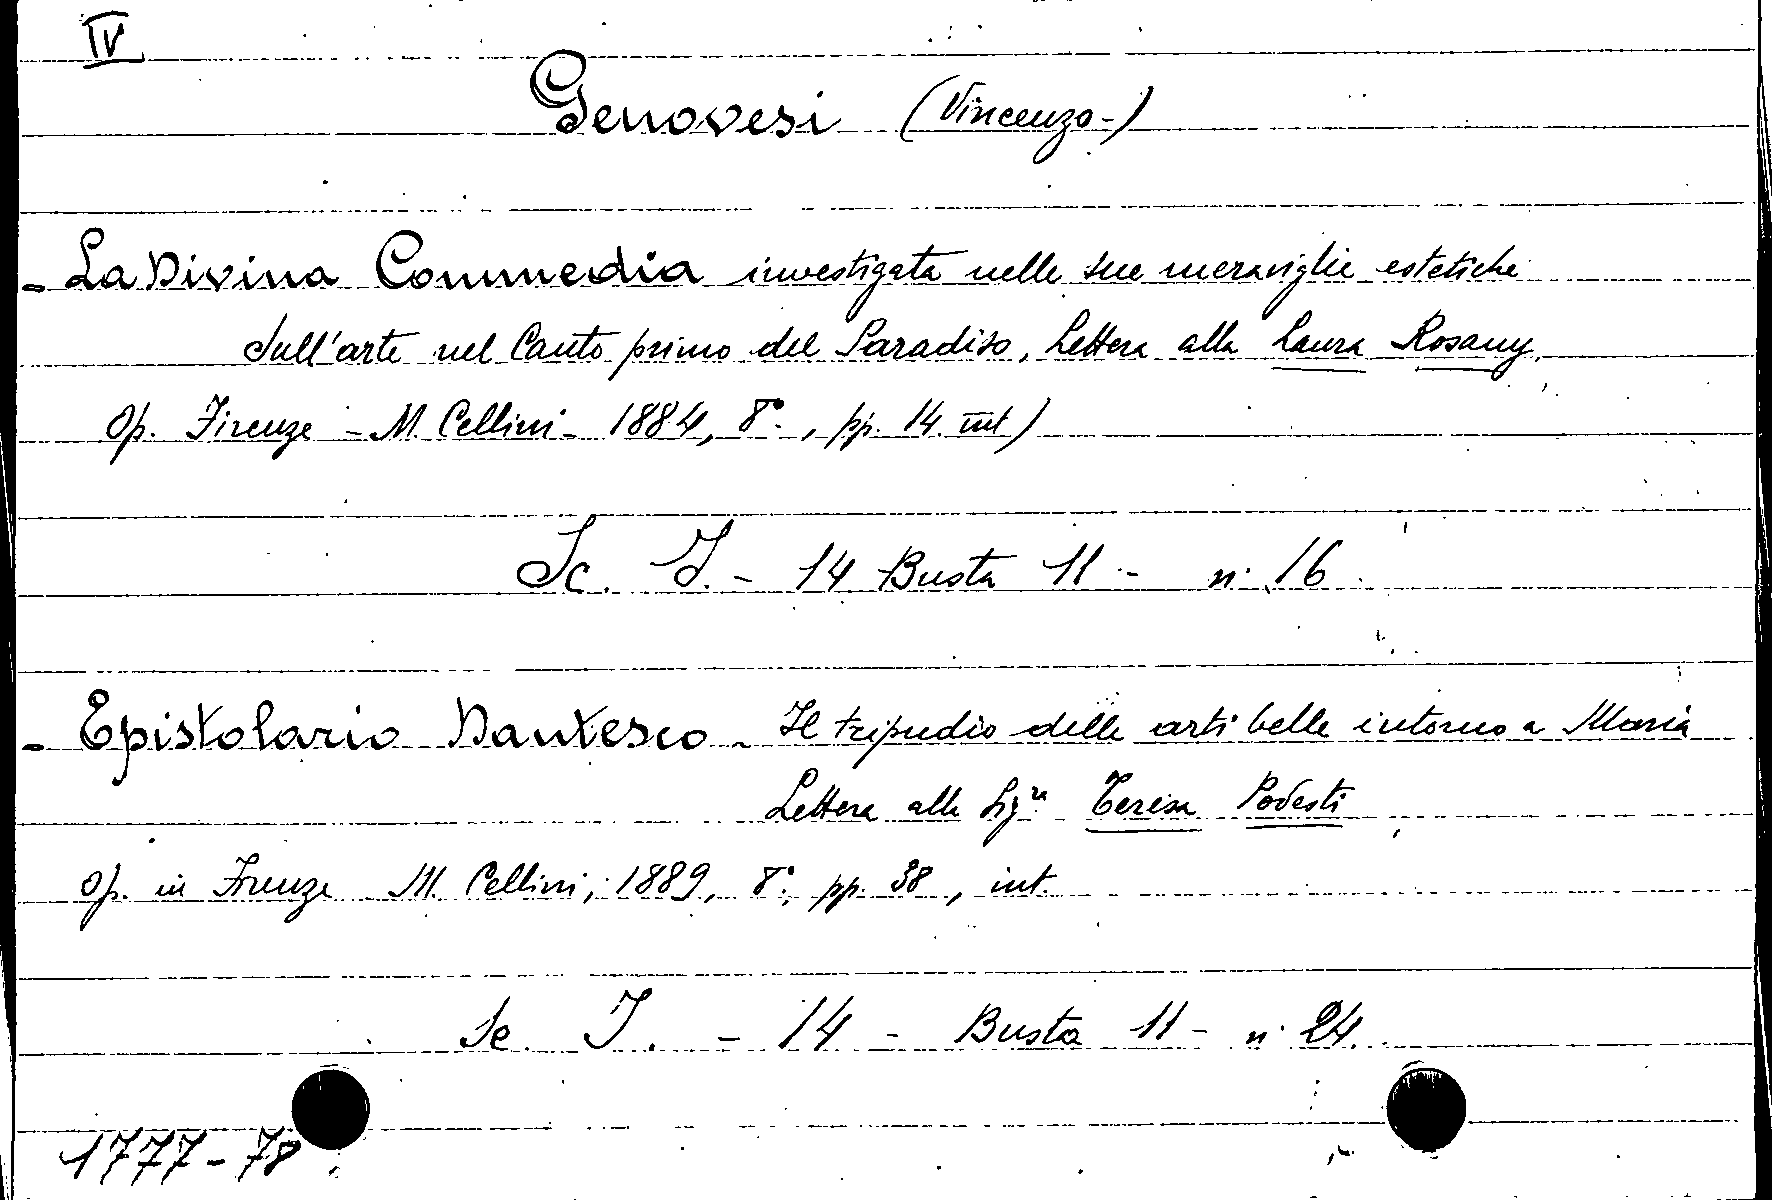 IV
Genovesi (Vincenzo-)
- La Divina Commedia investigata nelle sue meraviglie estetiche
Sull'arte nel Canto primo del Paradiso, Lettera alla Laura Rosany,
Op. Firenze - M. Cellini - 1884, 8°., pp. 14. int)
Sc. I. - 14 Busta 11 - n. 16.
- Epistolario Dantesco - Il tripudio delle arti belle intorno a Maria
Lettera alla Sig.ra Teresa Podesti
Op. in Firenze M. Cellini, 1889, 8°, pp. 38, int.
Sc. I. - 14 - Busta 11 - n. 24.
1777-78